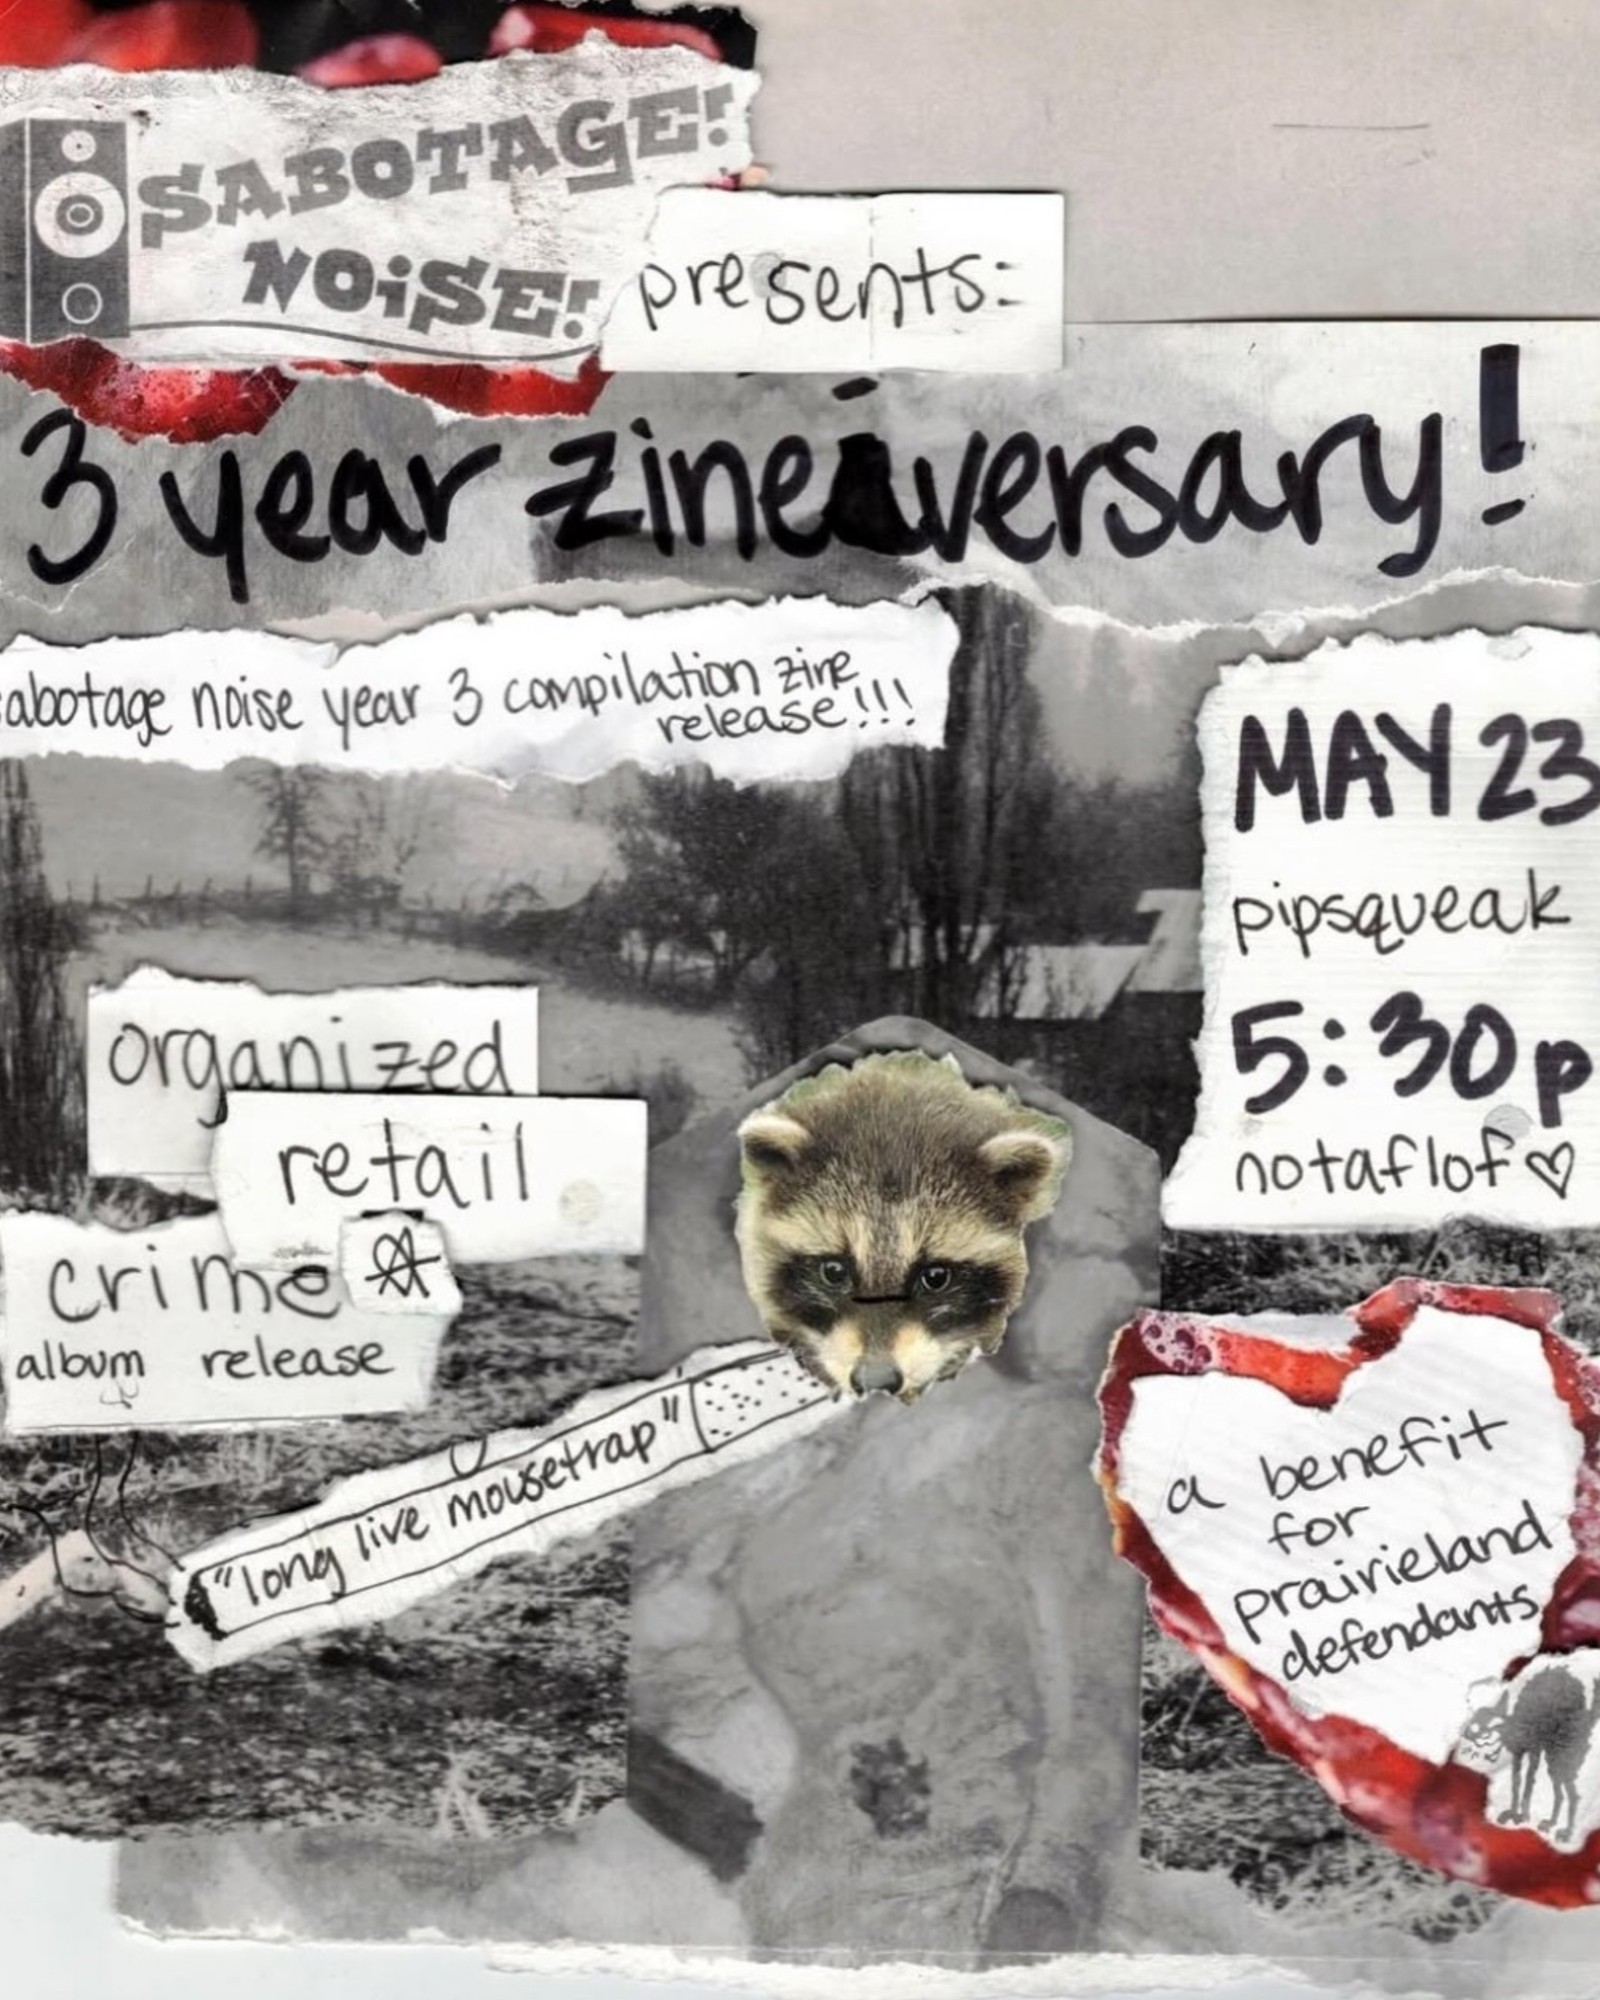 SABOTAGE!
NOiSE!
presents:
3 year zineiversary!
sabotage noise year 3 compilation zine
release!!!
MAY 23
pipsqueak
5:30p
notaflof♡
organized
retail
crime
album release
"long live mousetrap"
a benefit
for
prairieland
defendants